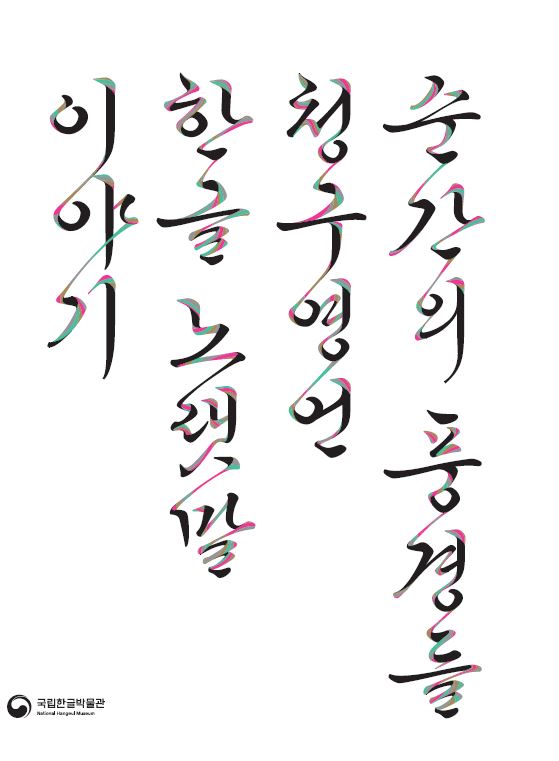 순간의 풍경들
청구영언
한글 노랫말
이야기
국립한글박물관
National Hangeul Museum